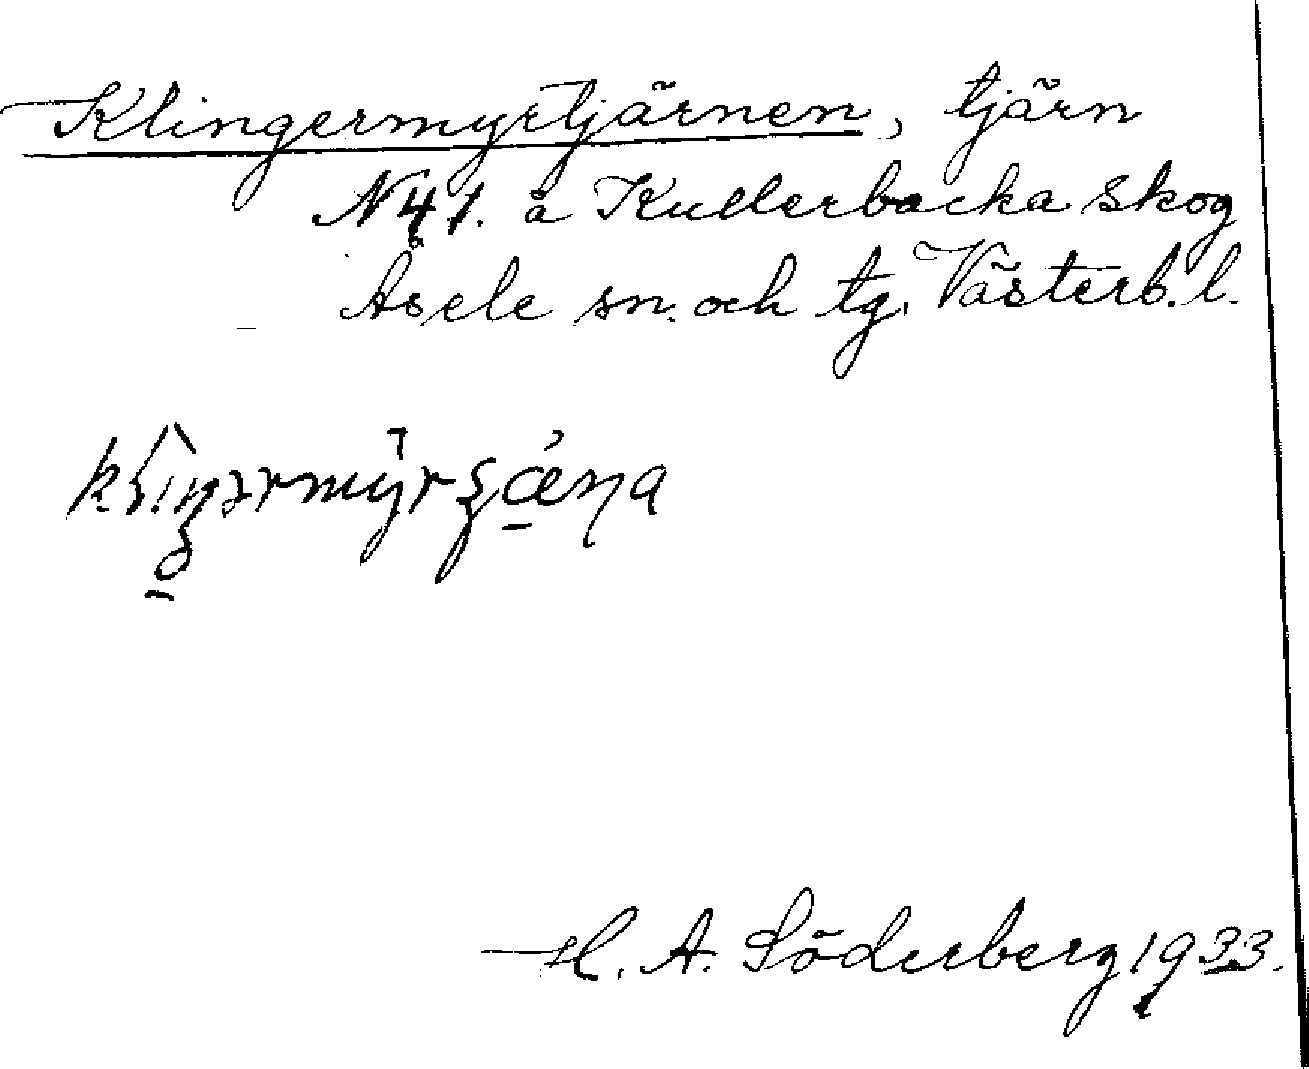 Klingermyrtjärnen, tjärn
N 41. å Kullerbacka skog
Åsele sn. och tg. Västerb. l.
H. A. Söderberg 1933.